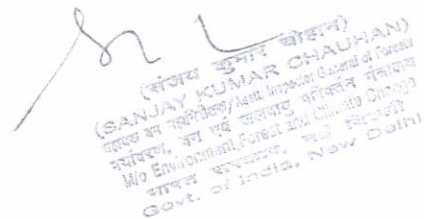 (संजय कुमार चौहान)
(SANJAY KUMAR CHAUHAN)
सहायक वन महानिरीक्षक/Asstt. Inspector General of Forests
पर्यावरण, वन एवं जलवायु परिवर्तन मंत्रालय
M/o Environment, Forest and Climate Change
भारत सरकार, नई दिल्ली
Govt. of India, New Delhi